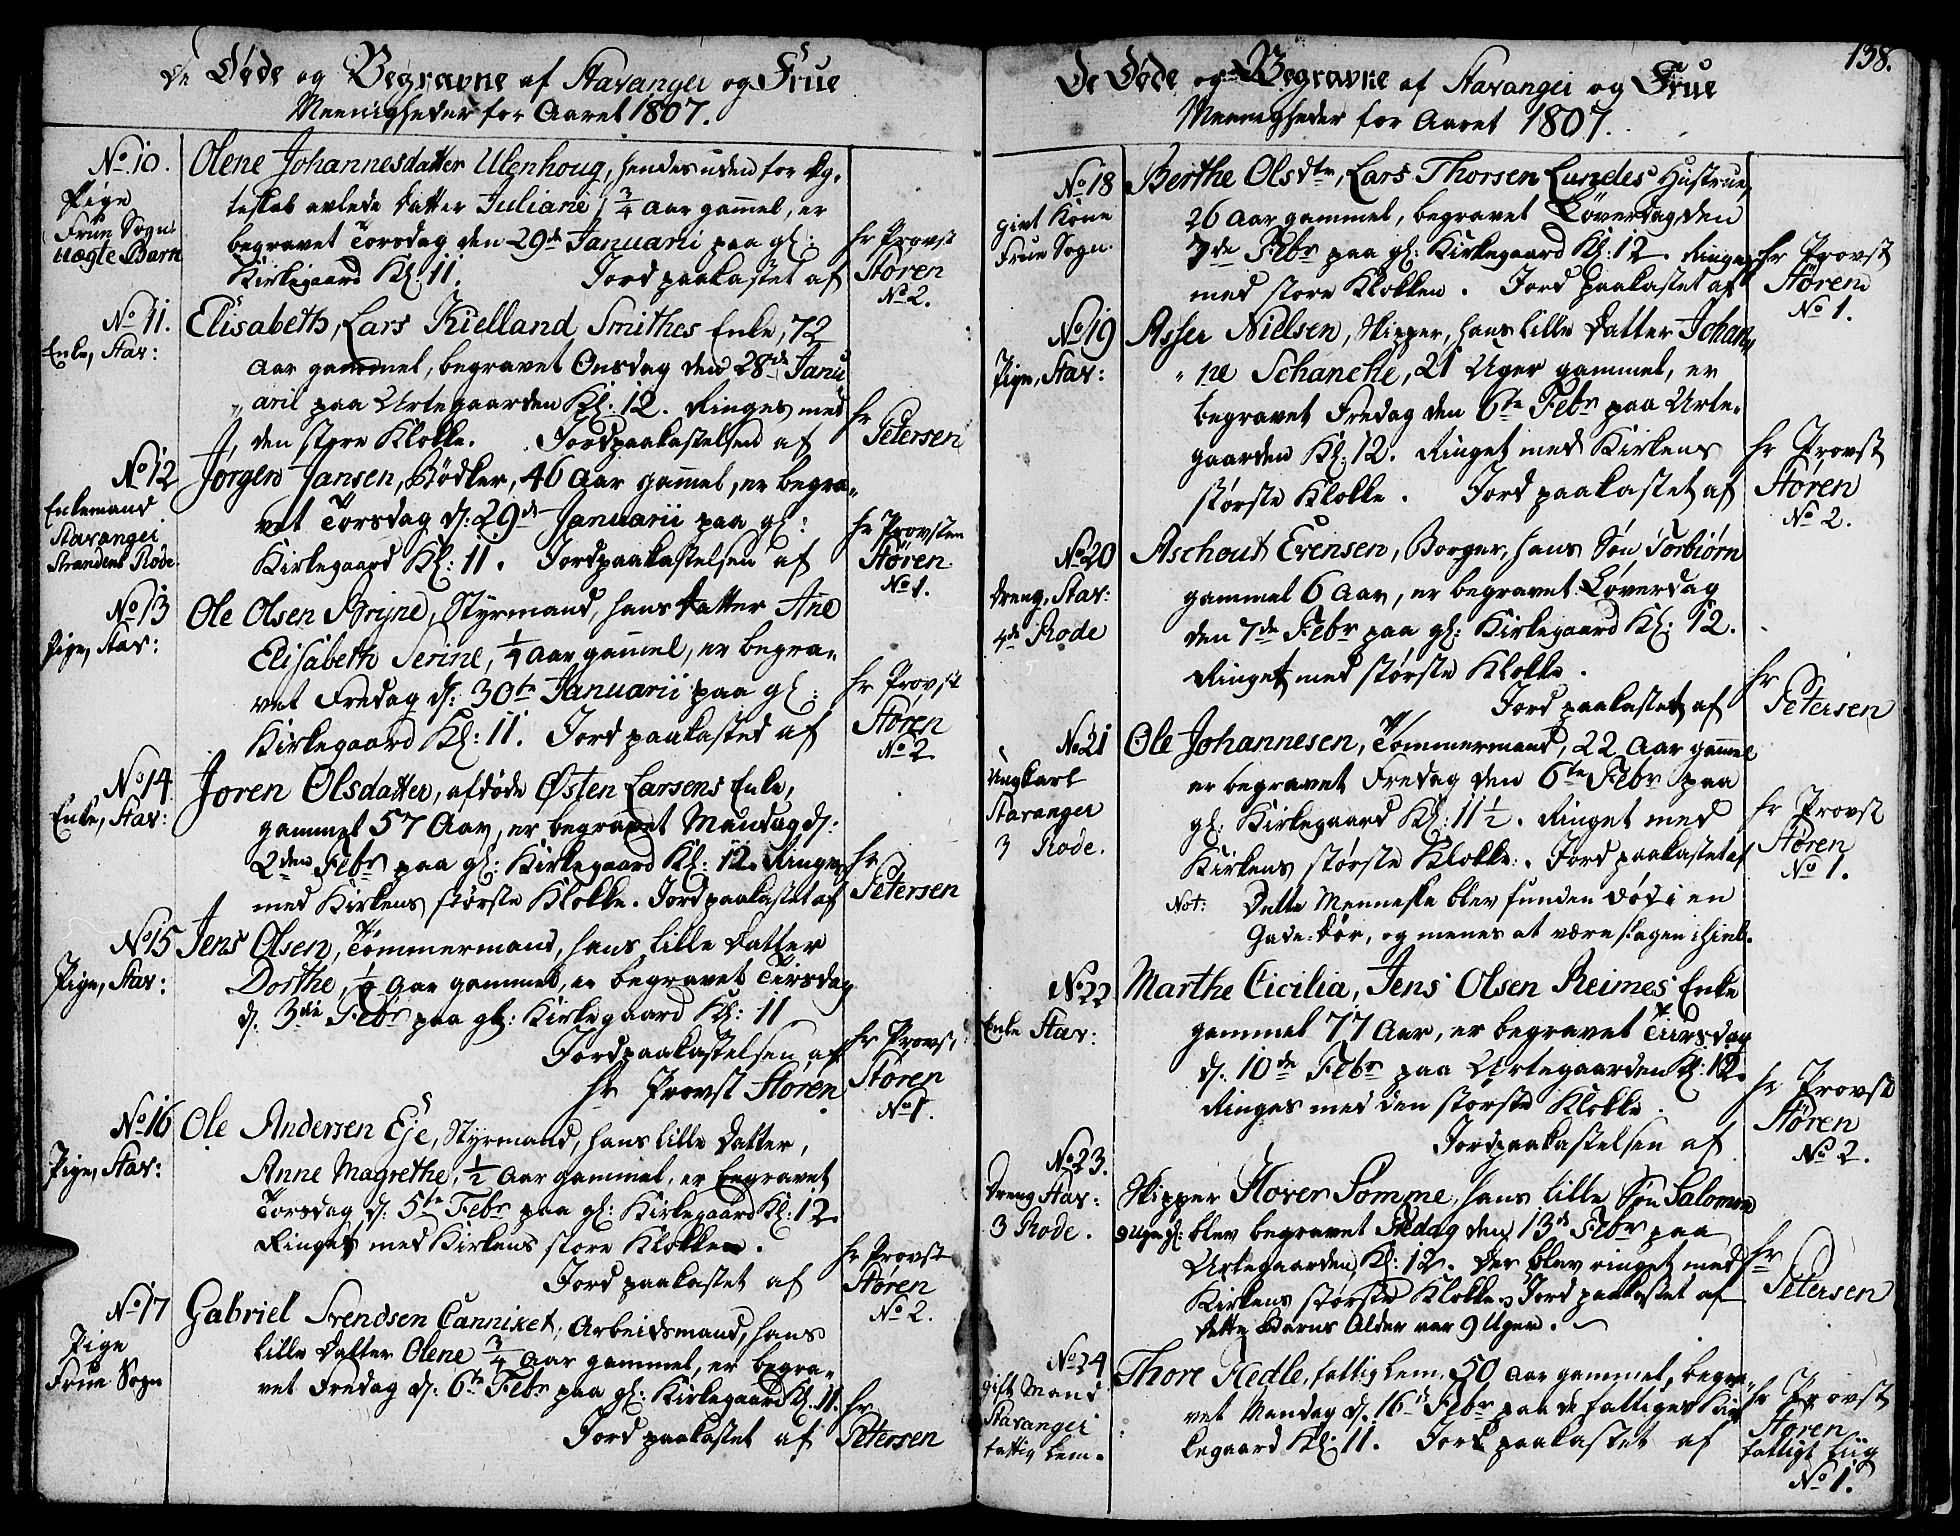 De Døde og Begravne af Stavanger og Frue
Meenigheder for Aaret 1807.
No 10.
Pige
Frue Sogn
uægte Barn
Olene Johannesdatter Ulenhoug, hendes uden for Æg-
teskab avlede Datter Juliane, 3/4 Aar gammel, er
begravet Torsdag den 29de Januarii paa gl:
Kirkegaard Kl: 11. Jord paakastet af
hr Provst
Støren
No 2.
No 11.
Enke, Stav:
Elisabeth, Lars Kielland Smithes Enke, 72
Aar gammel, begravet Onsdag den 28de Janu
"arii paa Urtegaarden Kl: 12. Ringes med
den store Klokke. Jordpaakastelsen af
hr
Petersen
No 12
Enkemand
Stavanger
Strandens Rode
Jørgen Jansen, Bødker, 46 Aar gammel, er begra-
vet Torsdag d: 29de Januarii paa gl:
Kirkegaard Kl: 11. Jordpaakastelsen af
hr Provsten
Støren
No 1.
No 13
Pige, Stav:
Ole Olsen Bryne, Styrmand, hans Datter Ane
Elisabeth Serine, 1/4 Aar gammel, er begra-
vet Fredag d: 30te Januarii paa gl:
Kirkegaard Kl: 11. Jord paakasted af
hr Provst
Støren
No 2
No 14
Enke, Stav:
Joren Olsdatter, afdøde Østen Larsens Enke,
gammel 57 Aar, er begravet Mandag d:
2den Febr paa gl: Kirkegaard Kl: 12. Ringes
med Kirkens største Klokke. Jordpaakastet af
hr
Petersen
No 15
Pige, Stav:
Jens Olsen, Tømmermand, hans lille Datter
Dorthe, 1/2 Aar gammel, er begravet Tirsdag
d. 3die Febr paa gl: Kirkegaard Kl: 11
Jordpaakastelsen af
hr Provst Støren
hr Provst
Støren
No 1.
No 16
Pige, Stav:
Ole Andersen Eje, Styrmand, hans lille Datter,
Anne Magrethe, 1/2 Aar gammel, er begravet
Torsdag d: 5te Febr paa gl: Kirkegaard Kl: 12.
Ringet med Kirkens store Klokken.
Jord paakastet af
hr Provst
Støren
No 2.
No 17
Pige
Frue Sogn
Gabriel Svendsen Canniket, Arbeidsmand, hans
lille Datter Olene 3/4 Aar gammel, er begra-
vet Fredag d: 6te Febr paa gl: Kirkegaard Kl: 11.
Jord paakastet af
hr
Petersen
138.
De Døde og Begravne af Stavanger og Frue
Meenigheder for Aaret 1807.
No 18
givt Kone
Frue Sogn
Berthe Olsdtr, Lars Thorsen Lundes Hustrue,
26 Aar gammel, begravet Løverdag den
7de Febr paa gl: Kirkegaard Kl: 12. Ringes
med store Klokken. Jord paakastet af
hr Provst
Støren
No 1.
No 19
Pige, Stav:
Asser Nielsen, Skipper, hans lille Datter Johan,,
" ne Schanche, 21 Uger gammel, er
begravet Fredag den 6te Febr paa Urte-
gaarden Kl: 12. Ringet med Kirkens
største Klokke. Jord paakastet af
hr Provst
Støren
No 2.
No 20
Dreng, Stav:
4de Rode
Aschout Evensen, Borger, hans Søn Torbiørn
gammel 6 Aar, er begravet Løverdag
den 7de Febr paa gl: Kirkegaard Kl: 12.
Ringet med største Klokke.
Jord paakastet af
hr
Petersen
No 21
Ungkarl
Stavanger
3 Rode.
Ole Johannesen, Tømmermand, 22 Aar gammel
er begravet Fredag den 6te Febr paa
gl: Kirkegaard Kl: 11 1/2. Ringet med
Kirkens største Klokke. Jord paakastet af
Not: Dette Menneske blev funden død i en
Gade-Dør, og menes at være slagen ihiel.
hr Provst
Støren
No 1.
No 22
Enke Stav:
Marthe Cicilia, Jens Olsen Reimes Enke
gammel 77 Aar, er begravet Tiirsdag
d. 10de Febr paa Urtegaarden Kl: 12.
Ringes med den største Klokke.
Jordpaakastelsen af
hr Provst
Støren
No 2.
No 23.
Dreng Stav:
3 Rode.
Skipper Hover Somme, hans lille Søn Salomon
9 Uger gl: blev begravet Fredag den 13de Febr paa
Urtegaarden Kl: 12. Der blev ringet med
Kirkens største Klokke. Jord paakastet af
Dette Barns Alder var 9 Uger.
hr
Petersen
No 24
gift Mand
Stavanger
fattig Lem.
Thore Fledle, fattig Lem, 50 Aar gammel, begra-
vet Mandag d. 16de Febr paa de fattiges Kir
kegaard Kl: 11. Jord paakastet af
hr Provst
Støren
fattigt Liig
No 1.